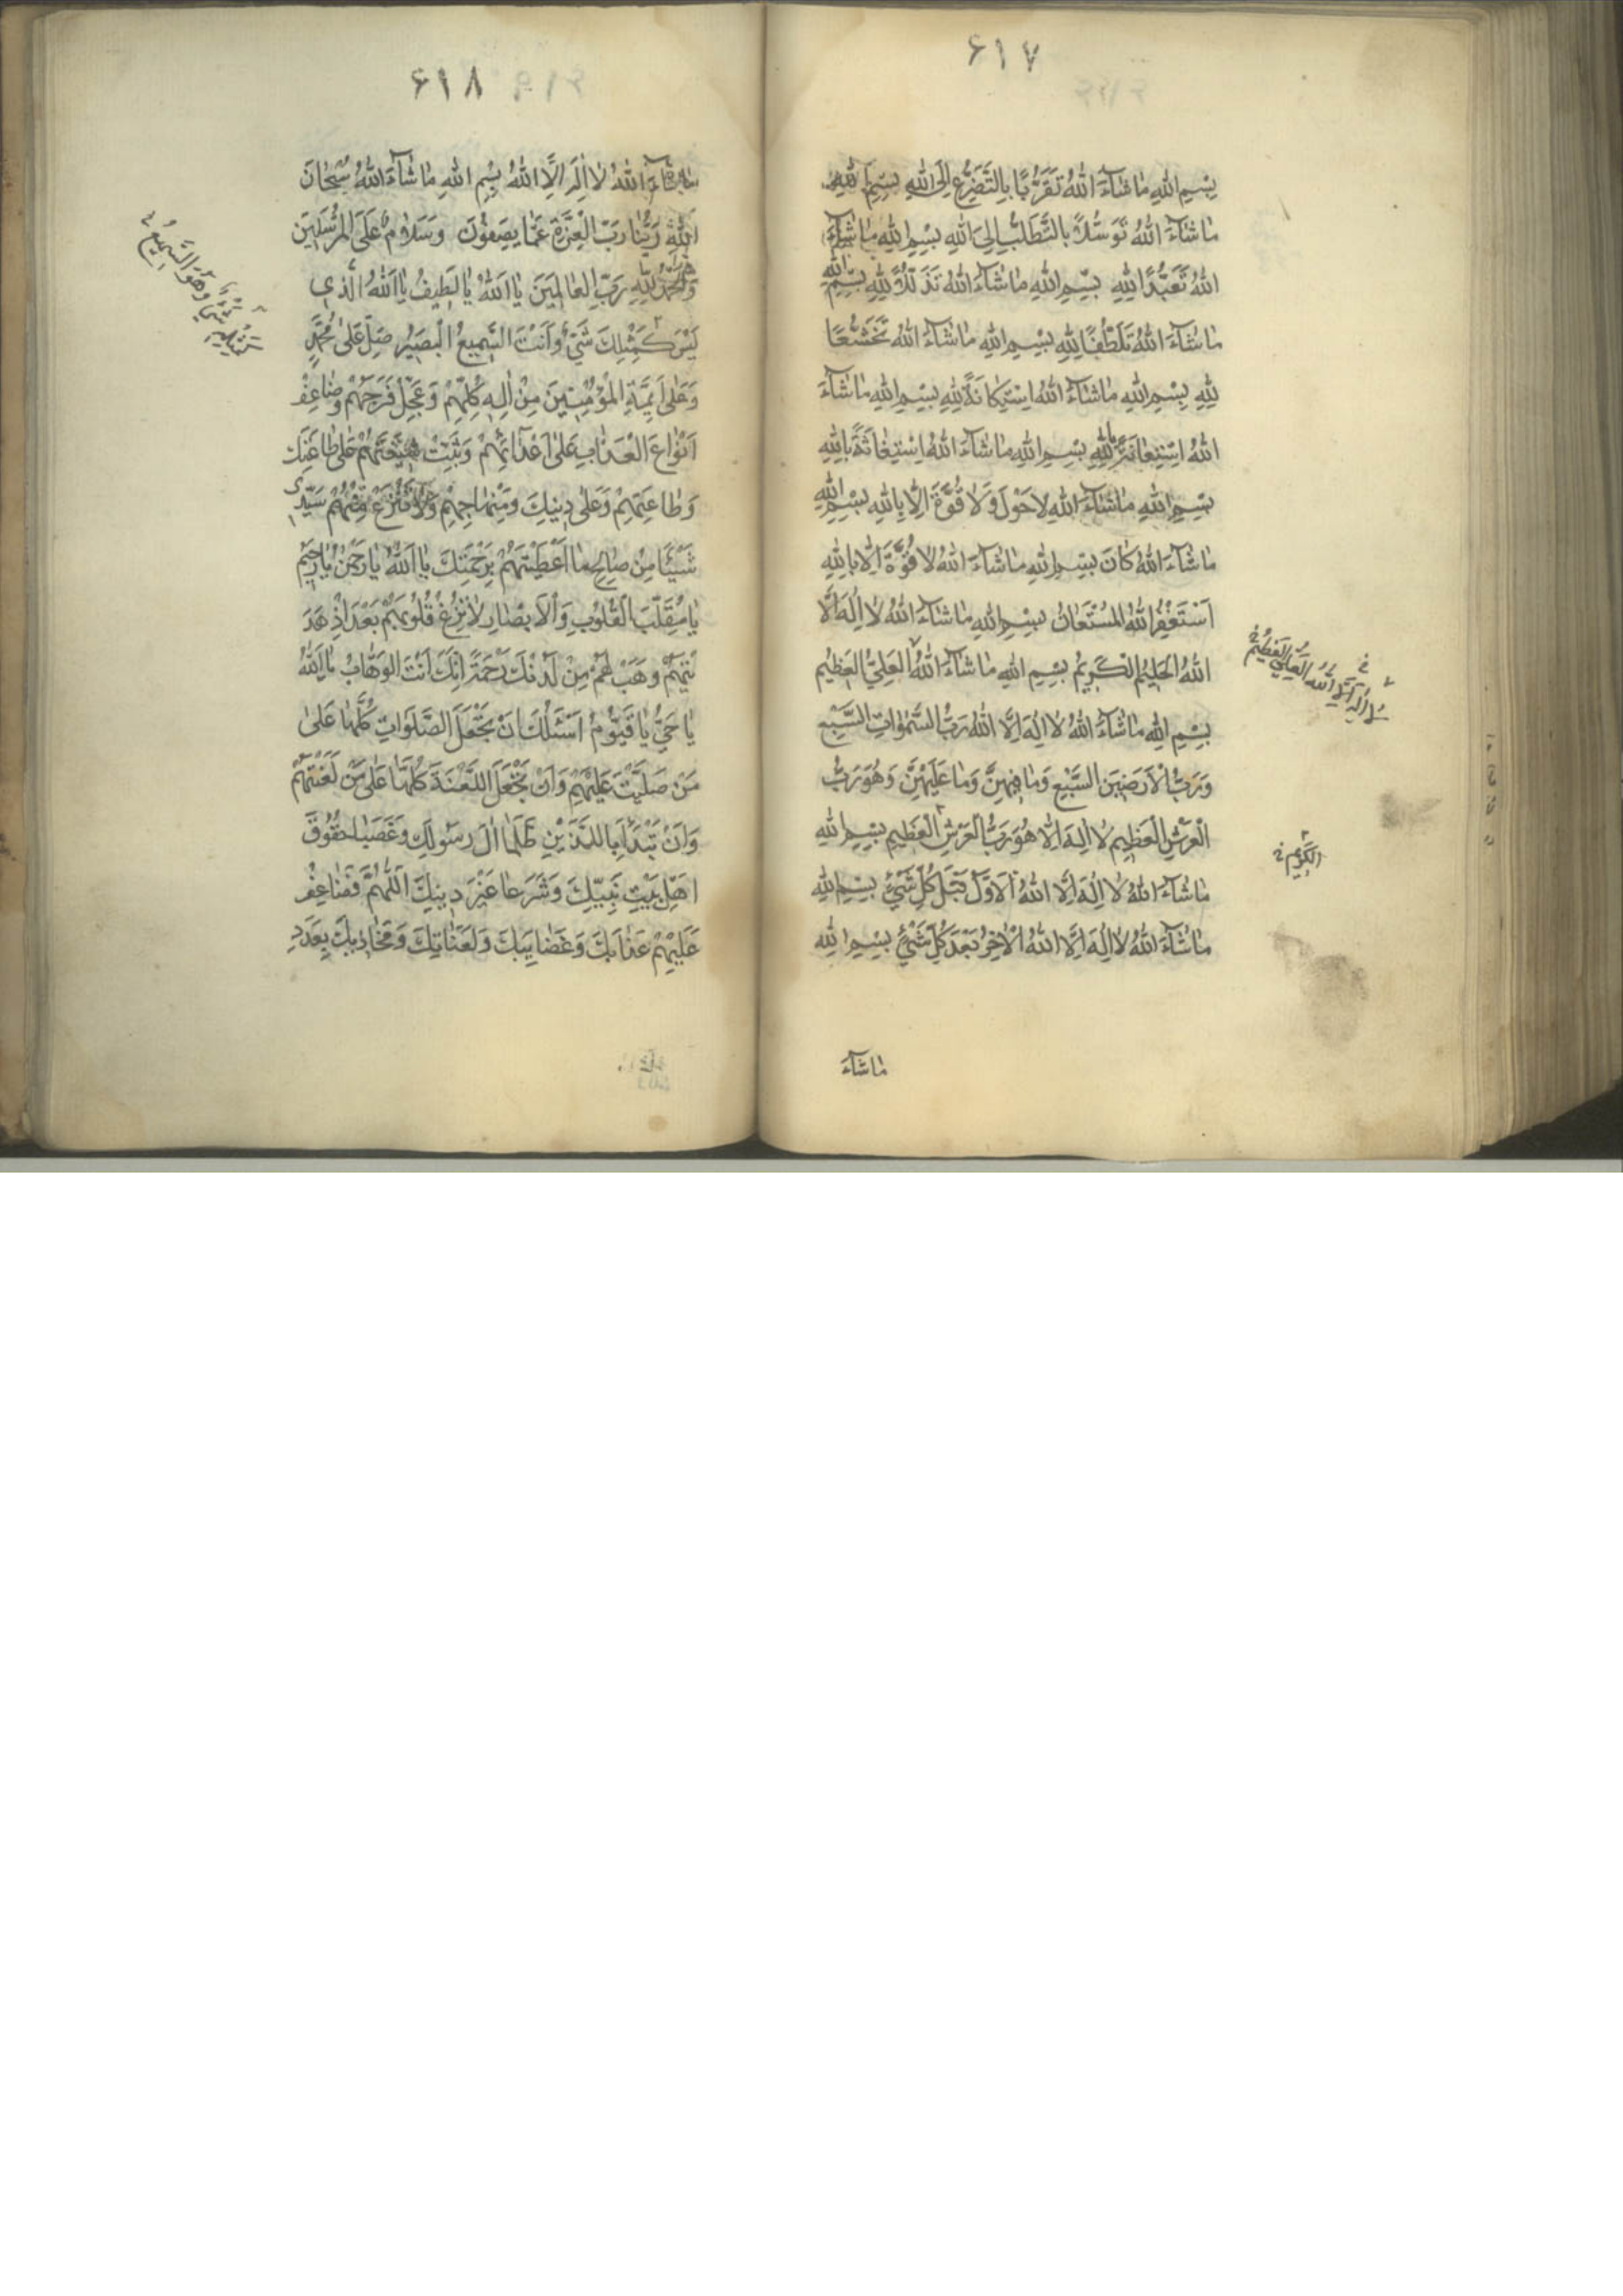 ۶۱۷
بِسْمِ اللهِ مٰا شٰآءَ اللهُ تَقَرُّبًا بِالتَّضَرُّعِ اِلَی اللهِ بِسْمِ اللهِ
مٰا شٰآءَ اللهُ تَوَسُّلًا بِالتَّطَلُّبِ اِلیَ اللهِ بِسْمِ اللهِ مٰا شٰآءَ
اللهُ تَعَبُّدًا لِلهِ بِسْمِ اللهِ مٰا شٰآءَ اللهُ تَذَلُّلًا لِلهِ بِسْمِ اللهِ
مٰا شٰآءَ اللهُ تَلَطُّفًا لِلهِ بِسْمِ اللهِ مٰا شٰآءَ اللهُ تَخَشُّعًا
لِلهِ بِسْمِ اللهِ مٰا شٰآءَ اللهُ اِسْتِکٰانَةً لِلهِ بِسْمِ اللهِ مٰا شٰآءَ
اللهُ اِسْتِعٰانَةً بِاللهِ بِسْمِ اللهِ مٰا شٰآءَ اللهُ اِسْتِغٰاثَةً بِاللهِ
بِسْمِ اللهِ مٰا شٰآءَ اللهِ لا حَوْلَ وَلٰا قُوَّةَ اِلّٰا بِاللهِ بِسْمِ اللهِ
مٰا شٰآءَ اللهُ کٰانَ بِسْمِ اللهِ مٰا شٰآءَ اللهُ لٰا قُوَّةَ اِلّٰا بِاللهِ
اَسْتَغْفِرُ اللهَ المُسْتَعٰانُ بِسْمِ اللهِ مٰا شٰآءَ اللهُ لٰا اِلٰهَ اِلَّا
اللهُ الْحَلیٖمُ الْکَرِیمُ بِسْمِ اللهِ مٰا شٰآءَ اللهُ العَلِيُّ العَظیٖمُ
لٰا اِلٰهَ اِلَّا اللهُ العَلِيُّ العَظِيمُ
بِسْمِ اللهِ مٰا شٰآءَ اللهُ لٰا اِلٰهَ اِلَّا اللهُ رَبُّ السَّمٰوٰاتِ السَّبْعِ
وَرَبُّ الْاَرَضیٖنَ السَّبْعِ وَمٰا فیٖهِنَّ وَمٰا عَلَیْهِنَّ وَهُوَ رَبُّ
الْعَرْشِ الْعَظیٖمِ لٰا اِلٰهَ اِلّٰا هُوَ رَبُّ الْعَرْشِ الْعَظیٖمِ بِسْمِ اللهِ
الکَرِیمِ
مٰا شٰآءَ اللهُ لٰا اِلٰهَ اِلَّا اللهُ الْاَوَّلُ قَبْلَ کُلِّ شَيْءٍ بِسْمِ اللهِ
مٰا شٰآءَ اللهُ لٰا اِلٰهَ اِلَّا اللهُ الْاٰخِرُ بَعْدَ کُلِّ شَيْءٍ بِسْمِ اللهِ
مٰا شٰآءَ
۶۱۸
مٰا شٰآءَ اللهُ لٰا اِلٰهَ اِلَّا اللهُ بِسْمِ اللهِ مٰا شٰآءَ اللهُ سُبْحٰانَ
اللهِ رَبِّنٰا رَبِّ الْعِزَّةِ عَمّٰا یَصِفُونَ وَسَلٰامٌ عَلَی الْمُرْسَلیٖنَ
وَالْحَمْدُ لِلّٰهِ رَبِّ الْعٰالَمیٖنَ یٰا اَللهُ یٰا لَطیٖفُ یٰا اَللهُ الَّذیٖ
لَیْسَ کَمِثْلِكَ شَيْءٌ وَاَنْتَ السَّمیٖعُ الْبَصیٖرُ صَلِّ عَلیٰ مُحَمَّدٍ
وَهُوَ السَّمِیعُ
وَعَلیٰ اَئِمَّةِ الْمُؤْمِنیٖنَ مِنْ اٰلِهِ کُلِّهِمْ وَعَجِّلْ فَرَجَهُمْ وَضٰاعِفْ
اَنْوٰاعَ الْعَذٰابِ عَلیٰ اَعْدٰائِهِمْ وَثَبِّتْ شیٖعَتَهُمْ عَلیٰ طٰاعَتِكَ
وَطٰاعَتِهِمْ وَعَلیٰ دیٖنِكَ وَمِنْهٰاجِهِمْ وَلٰا تَنْزِعْ مِنْهُمْ سَیِّدیٖ
شَیْئًا مِنْ صٰالِحِ مٰا اَعْطَیْتَهُمْ بِرَحْمَتِكَ یٰا اَللهُ یٰا رَحْمٰنُ یٰا رَحیٖمُ
یٰا مُقَلِّبَ الْقُلُوبِ وَالْاَبْصٰارِ لٰا تُزِغْ قُلُوبَهُمْ بَعْدَ اِذْ هَدَ
یْتَهُمْ وَهَبْ لَهُمْ مِنْ لَدُنْكَ رَحْمَةً اِنَّكَ اَنْتَ الْوَهّٰابُ یٰا اَللهُ
یٰا حَيُّ یٰا قَیُّومُ اَسْئَلُكَ اَنْ تَجْعَلَ الصَّلَوٰاتِ کُلَّهٰا عَلیٰ
مَنْ صَلَّیْتَ عَلَیْهِمْ وَاَنْ تَجْعَلَ اللَّعْنَةَ کُلَّهٰا عَلیٰ مَنْ لَعَنْتَهُمْ
وَاَنْ تَبْدَأَ بِاللَّذَیْنِ ظَلَمٰا اٰلَ رَسُولِكَ وَغَصَبٰا حُقُوقَ
اَهْلِ بَیْتِ نَبِیِّكَ وَشَرَعٰا غَیْرَ دیٖنِكَ اَللّٰهُمَّ فَضٰاعِفْ
عَلَیْهِمْ عَذٰابَكَ وَغَضٰایِبَكَ وَلَعَنٰاتِكَ وَمَخٰاذیٖكَ بِعَدَدِ